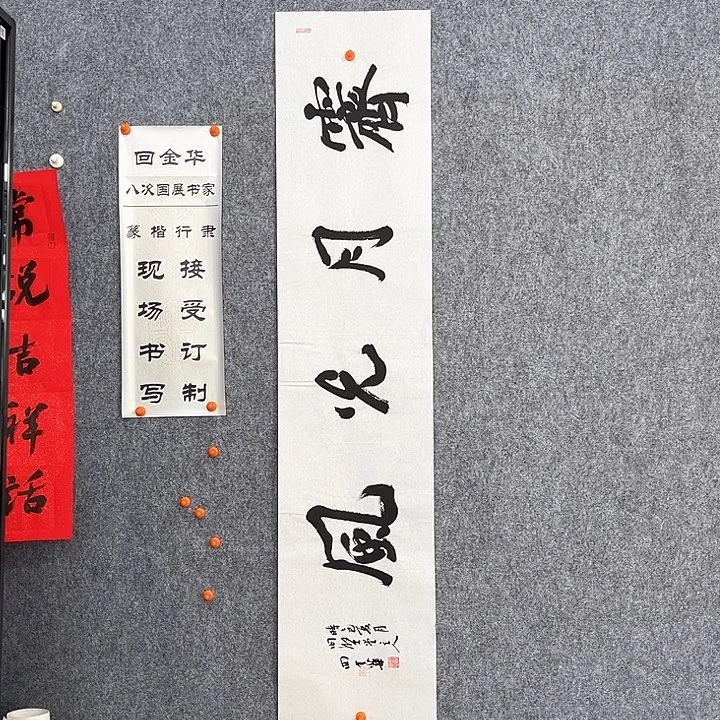 常说吉祥话
回金华
八次国展书家
篆楷行隶
现场书写
接受订制
霽月光風
回金華